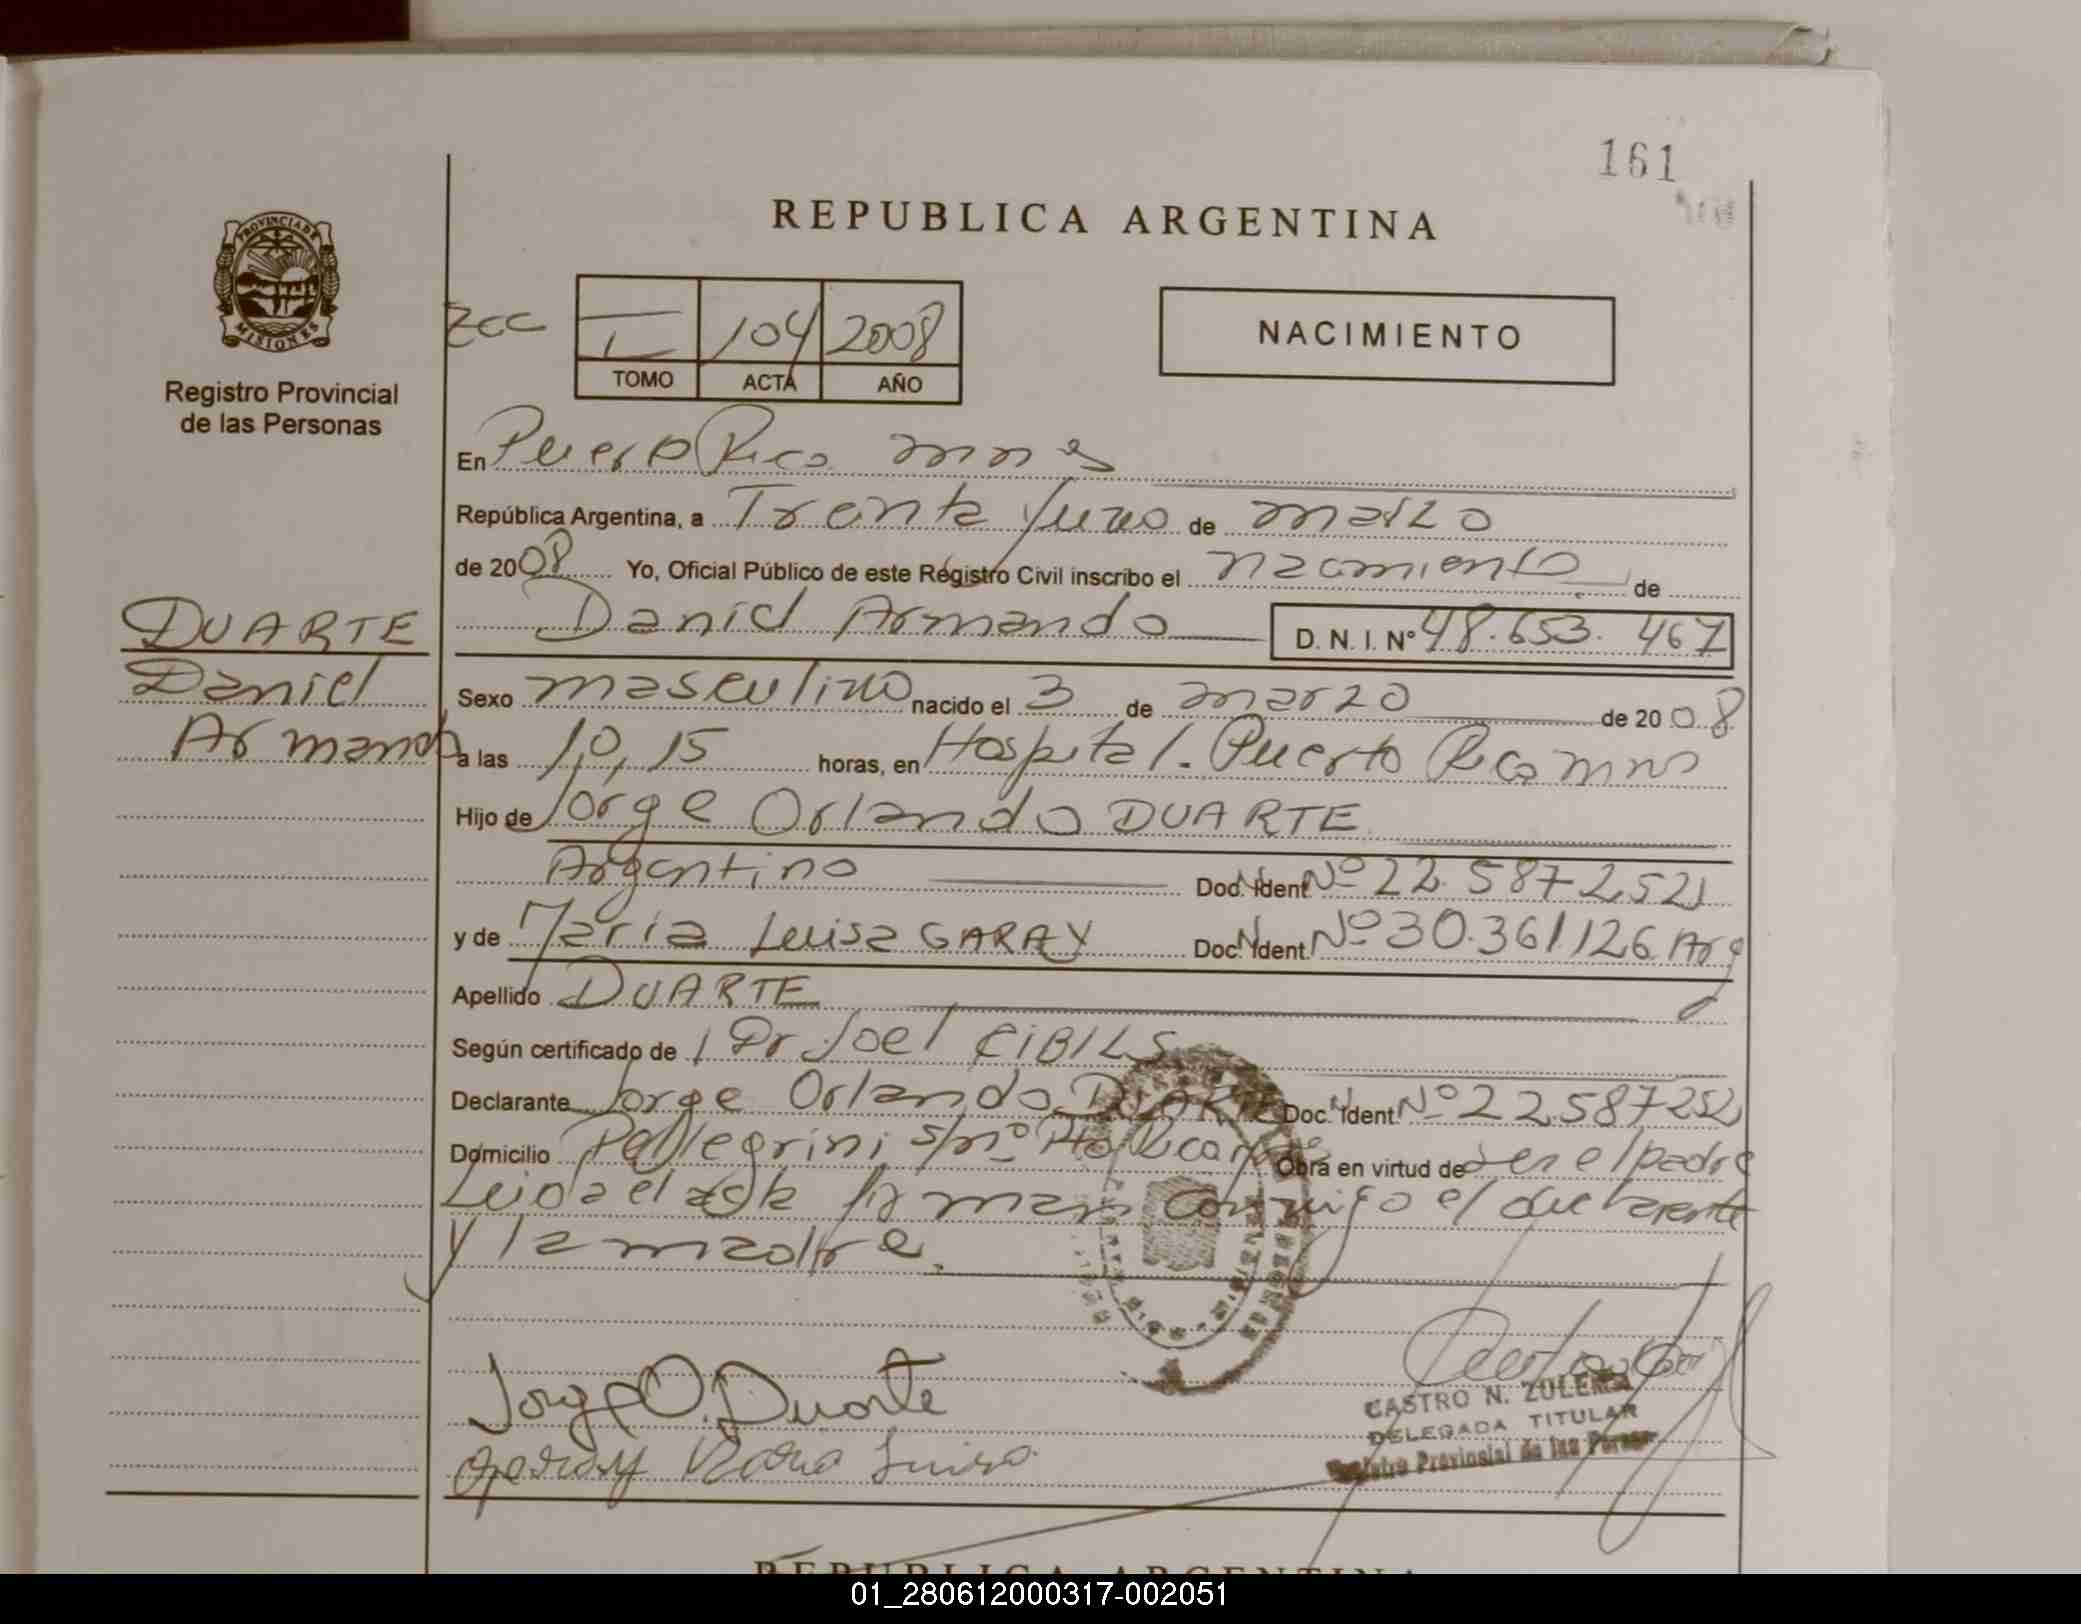 161
REPUBLICA ARGENTINA
PROVINCIA DE
MISIONES
Registro Provincial
de las Personas
I 104 2008
TOMO ACTA AÑO
NACIMIENTO
En Puerto Rico mns
República Argentina, a Treinta y uno de marzo
de 2008 Yo, Oficial Público de este Registro Civil inscribo el nacimiento de
DUARTE
Daniel
Armando
Daniel Armando D. N. I. Nº 48.653.467
Sexo masculino nacido el 3 de marzo de 2008
a las 10,15 horas, en Hospital. Puerto Rico mns
Hijo de Jorge Orlando DUARTE
Argentino Doc. Ident. Nº 22.587252
y de María Luisa GARAY Doc. Ident. Nº 30.361126 Arg
Apellido DUARTE
Según certificado de Dr Joel CIBILS
Declarante Jorge Orlando DUARTE Doc. Ident Nº 22587252
Domicilio Pellegrini s/nº Obra en virtud de ser el padre
Leida el acta firman conmigo el declarante
y la madre.
Jorge O. Duarte
Garay Maria Luisa
CASTRO N. ZULEMA
DELEGADA TITULAR
Registro Provincial de las Personas
REPUBLICA ARGENTINA
01_280612000317-002051